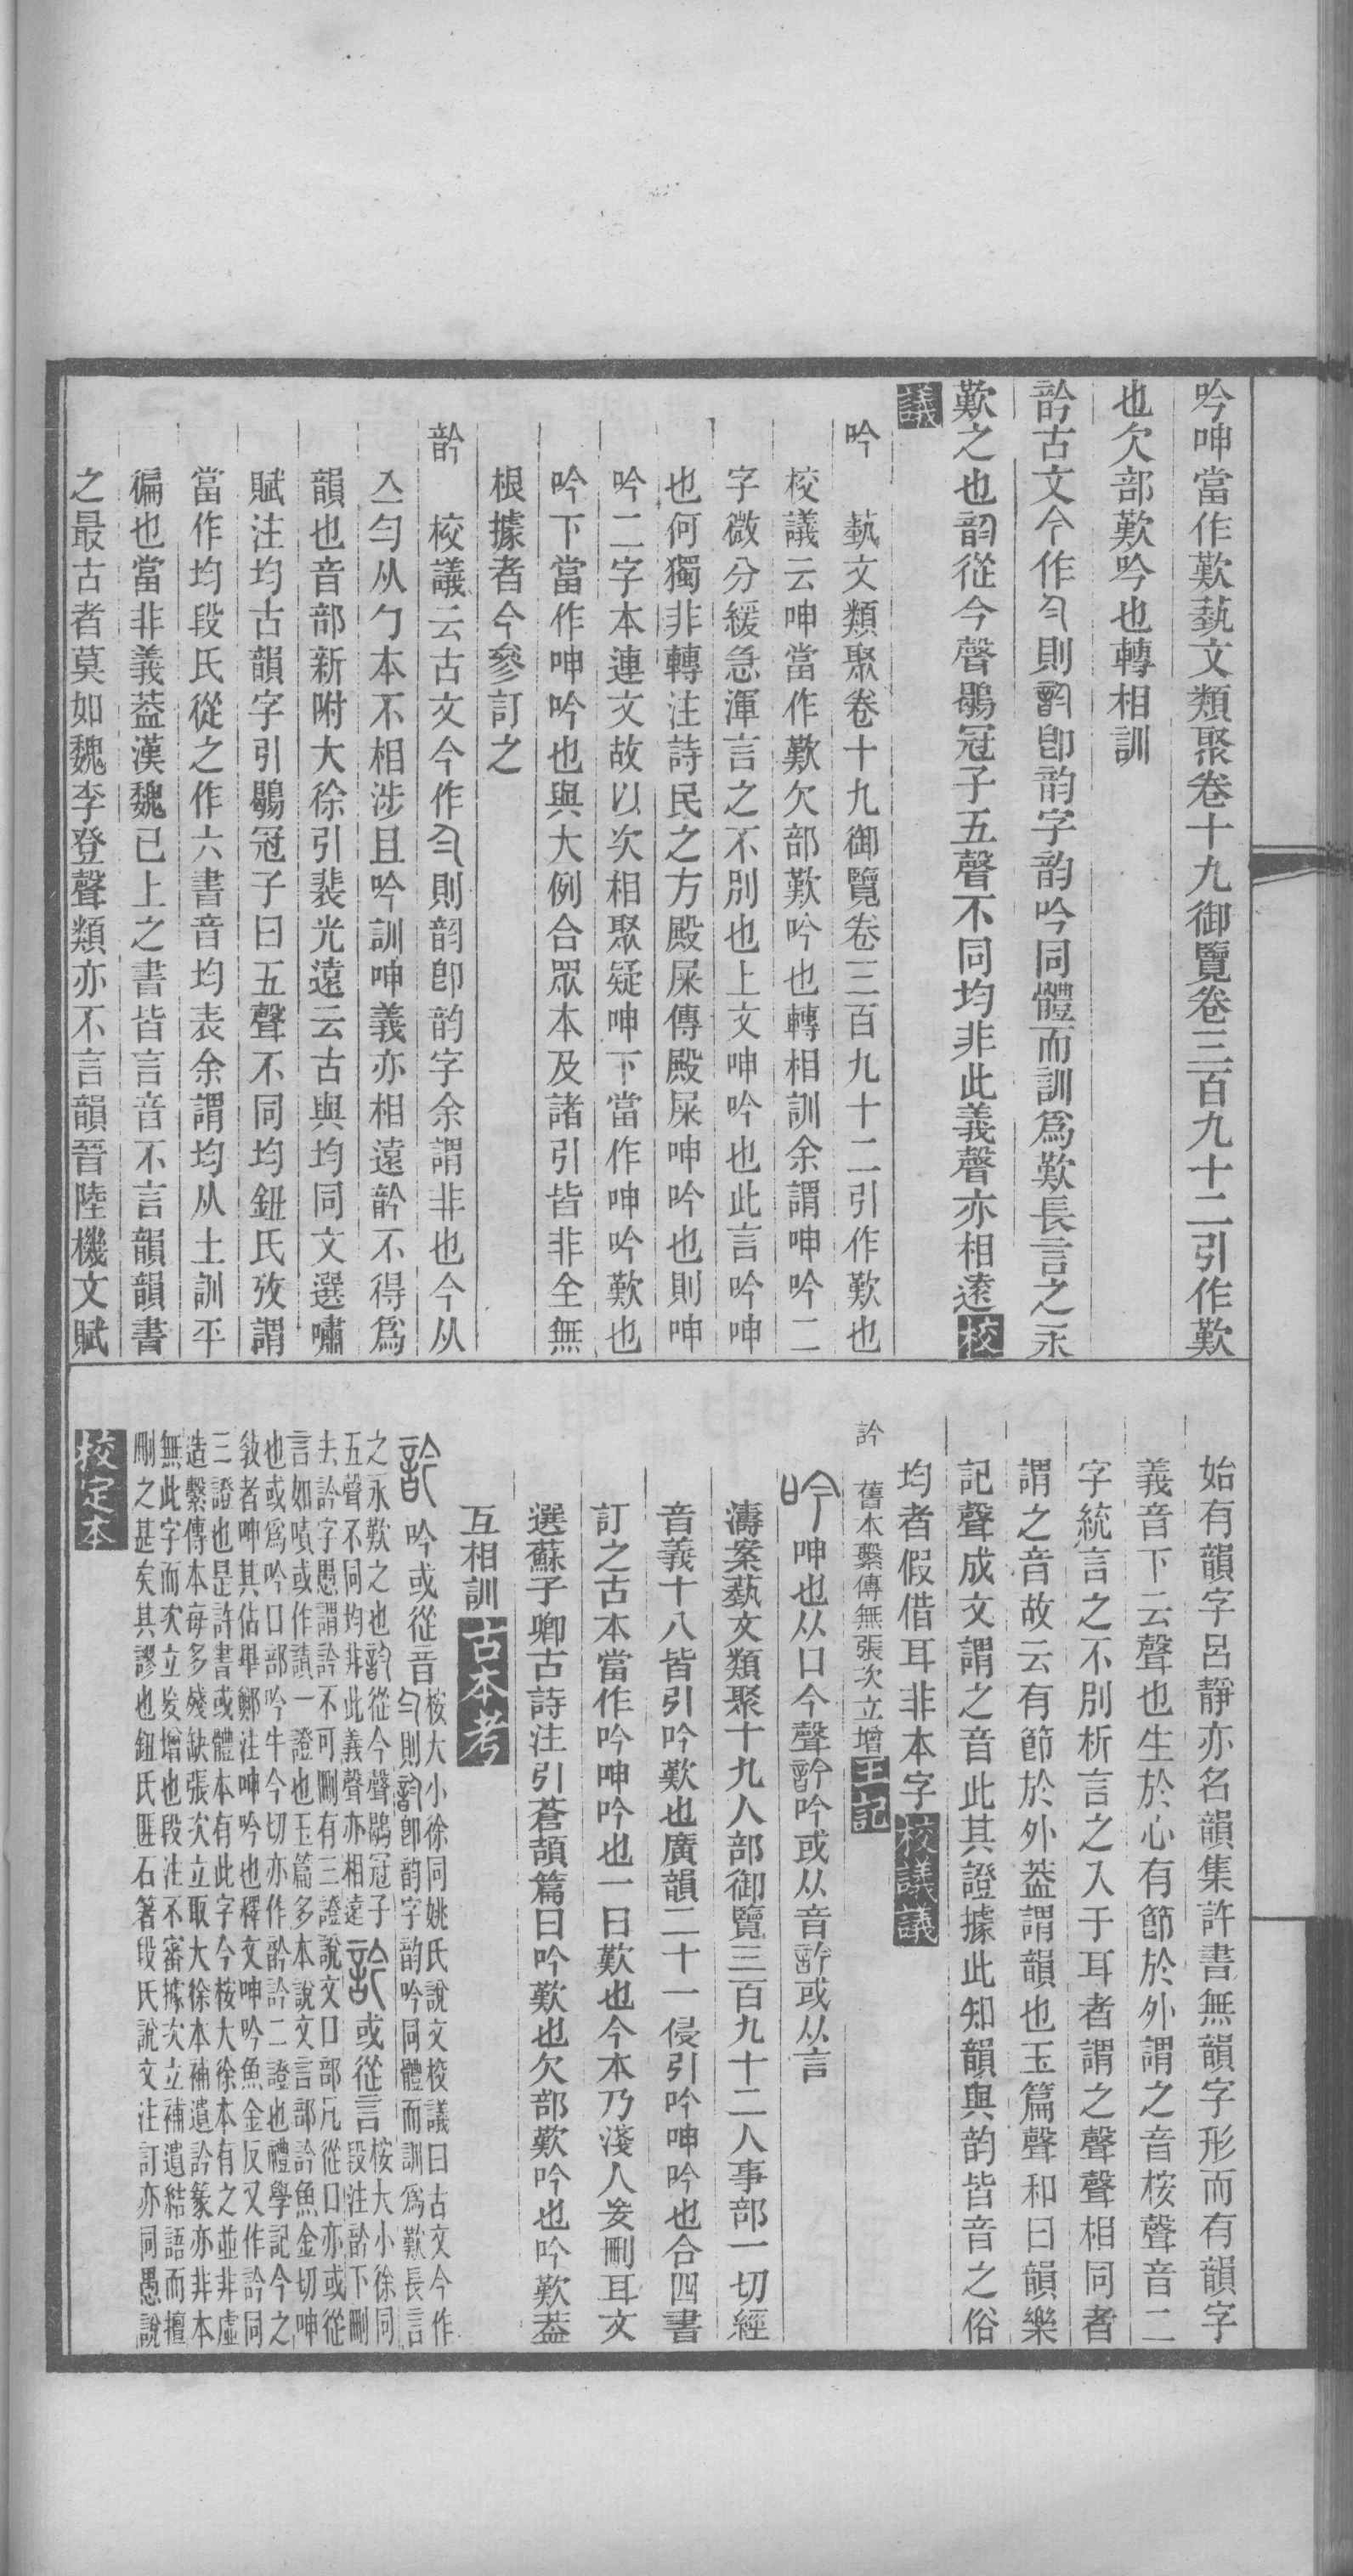 吟呻當作歎藝文類聚卷十九御覽卷三百九十二引作歎
也欠部歎吟也轉相訓
䪩古文今作則卽韵字韵吟同體而訓爲歎長言之永
歎之也韵從今聲鶡冠子五聲不同均非此義聲亦相遠校
議
吟　藝文類聚卷十九御覽卷三百九十二引作歎也
校議云呻當作歎欠部歎吟也轉相訓余謂呻吟二
字微分緩急渾言之不別也上文呻吟也此言吟呻
也何獨非轉注詩民之方殿屎傳殿屎呻吟也則呻
吟二字本連文故以次相聚疑呻下當作呻吟歎也
吟下當作呻吟也與大例合眾本及諸引皆非全無
根據者今參訂之
䪩　校議云古文今作則韵卽韵字余謂非也今从
亼勻从勹本不相涉且吟訓呻義亦相遠䪩不得爲
韻也音部新附大徐引裴光遠云古與均同文選嘯
賦注均古韻字引鶡冠子曰五聲不同均鈕氏攷謂
當作均段氏從之作六書音均表余謂均从土訓平
徧也當非義葢漢魏已上之書皆言音不言韻韻書
之最古者莫如魏李登聲類亦不言韻晉陸機文賦
始有韻字呂靜亦名韻集許書無韻字形而有韻字
義音下云聲也生於心有節於外謂之音桉聲音二
字統言之不別析言之入于耳者謂之聲聲相同者
謂之音故云有節於外葢謂韻也玉篇聲和曰韻樂
記聲成文謂之音此其證據此知韻與韵皆音之俗
均者假借耳非本字校議議
訡　舊本繫傳無張次立增王記
吟呻也从口今聲䪩吟或从音訡或从言
濤案藝文類聚十九人部御覽三百九十二人事部一切經
音義十八皆引吟歎也廣韻二十一侵引吟呻吟也合四書
訂之古本當作吟呻吟也一曰歎也今本乃淺人妄刪耳文
選蘇子卿古詩注引蒼頡篇曰吟歎也欠部歎吟也吟歎葢
互相訓古本考
䪩吟或從音桉大小徐同姚氏說文校議曰古文今作
則卽韵字韵吟同體而訓爲歎長言
之永歎之也從今聲鶡冠子
五聲不同均非此義聲亦相遠訡或從言桉大小徐同
段注䪩下刪
去訡字愚謂訡不可刪有三證說文口部凡從口亦或從
言如嘖或作讀一證也玉篇多本說文言部訡魚金切呻
也或爲吟口部吟牛今切亦作䪩訡二證也禮學記今之
敎者呻其佔畢鄭注呻吟也釋文呻吟魚金反又作訡同
三證也是許書或體本有此字今桉大徐本有之並非虛
造繫傳本每多殘缺張次立取大徐本補遺訡篆亦非本
無此字而次立妄增也段注不審據次立補遺結語而擅
刪之甚矣其謬也鈕氏匪石箸段氏說文注訂亦同愚說
校定本